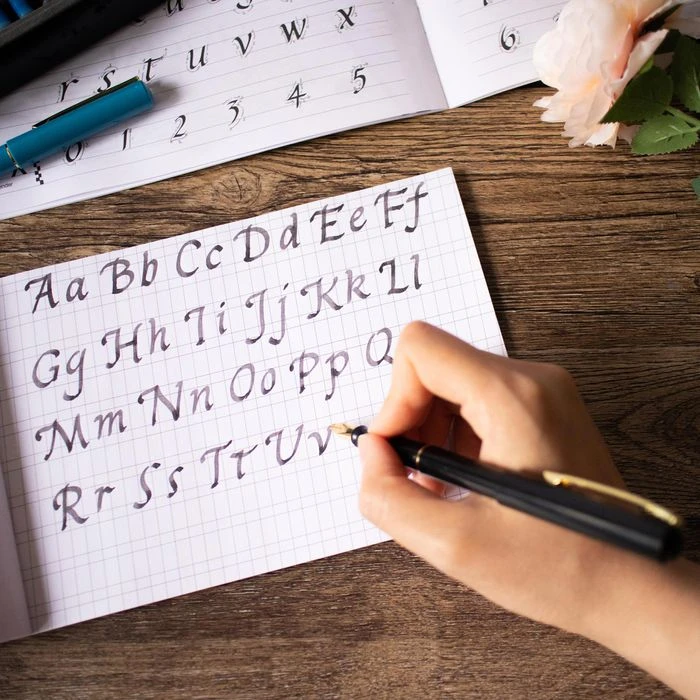 r s t u v w x
6
0 1 2 3 4 5
Aa Bb Cc Dd Ee Ff
Gg Hh Ii Jj Kk Ll
Mm Nn Oo Pp Q
Rr Ss Tt Uv